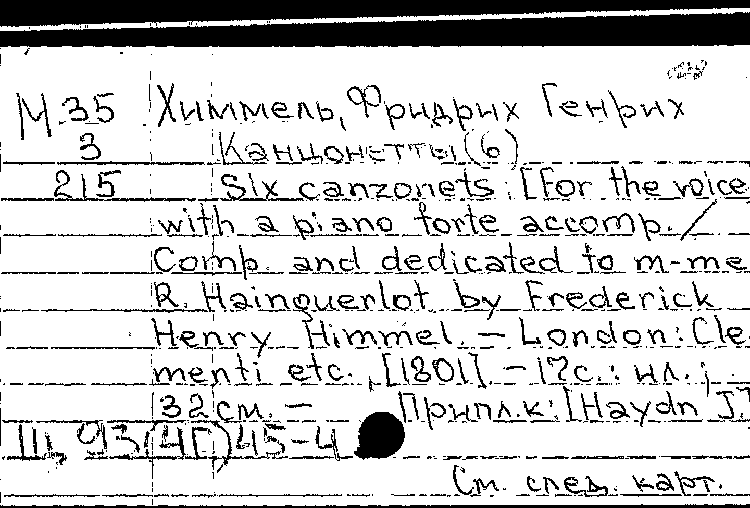 М.35 Химмель, Фридрих Генрих
3 Канцонетты (6)
215 Six canzonets : [For the voice
with a piano forte accomp. /
Comp. and dedicated to m-me
R. Hainguerlot by Frederick
Henry Himmel. – London : Cle-
menti etc., [1801]. – 17 с. : ил. ;
32 см. – Припл. к: [Haydn J.]
Щ 93(4Г)45-4
См. след. карт.